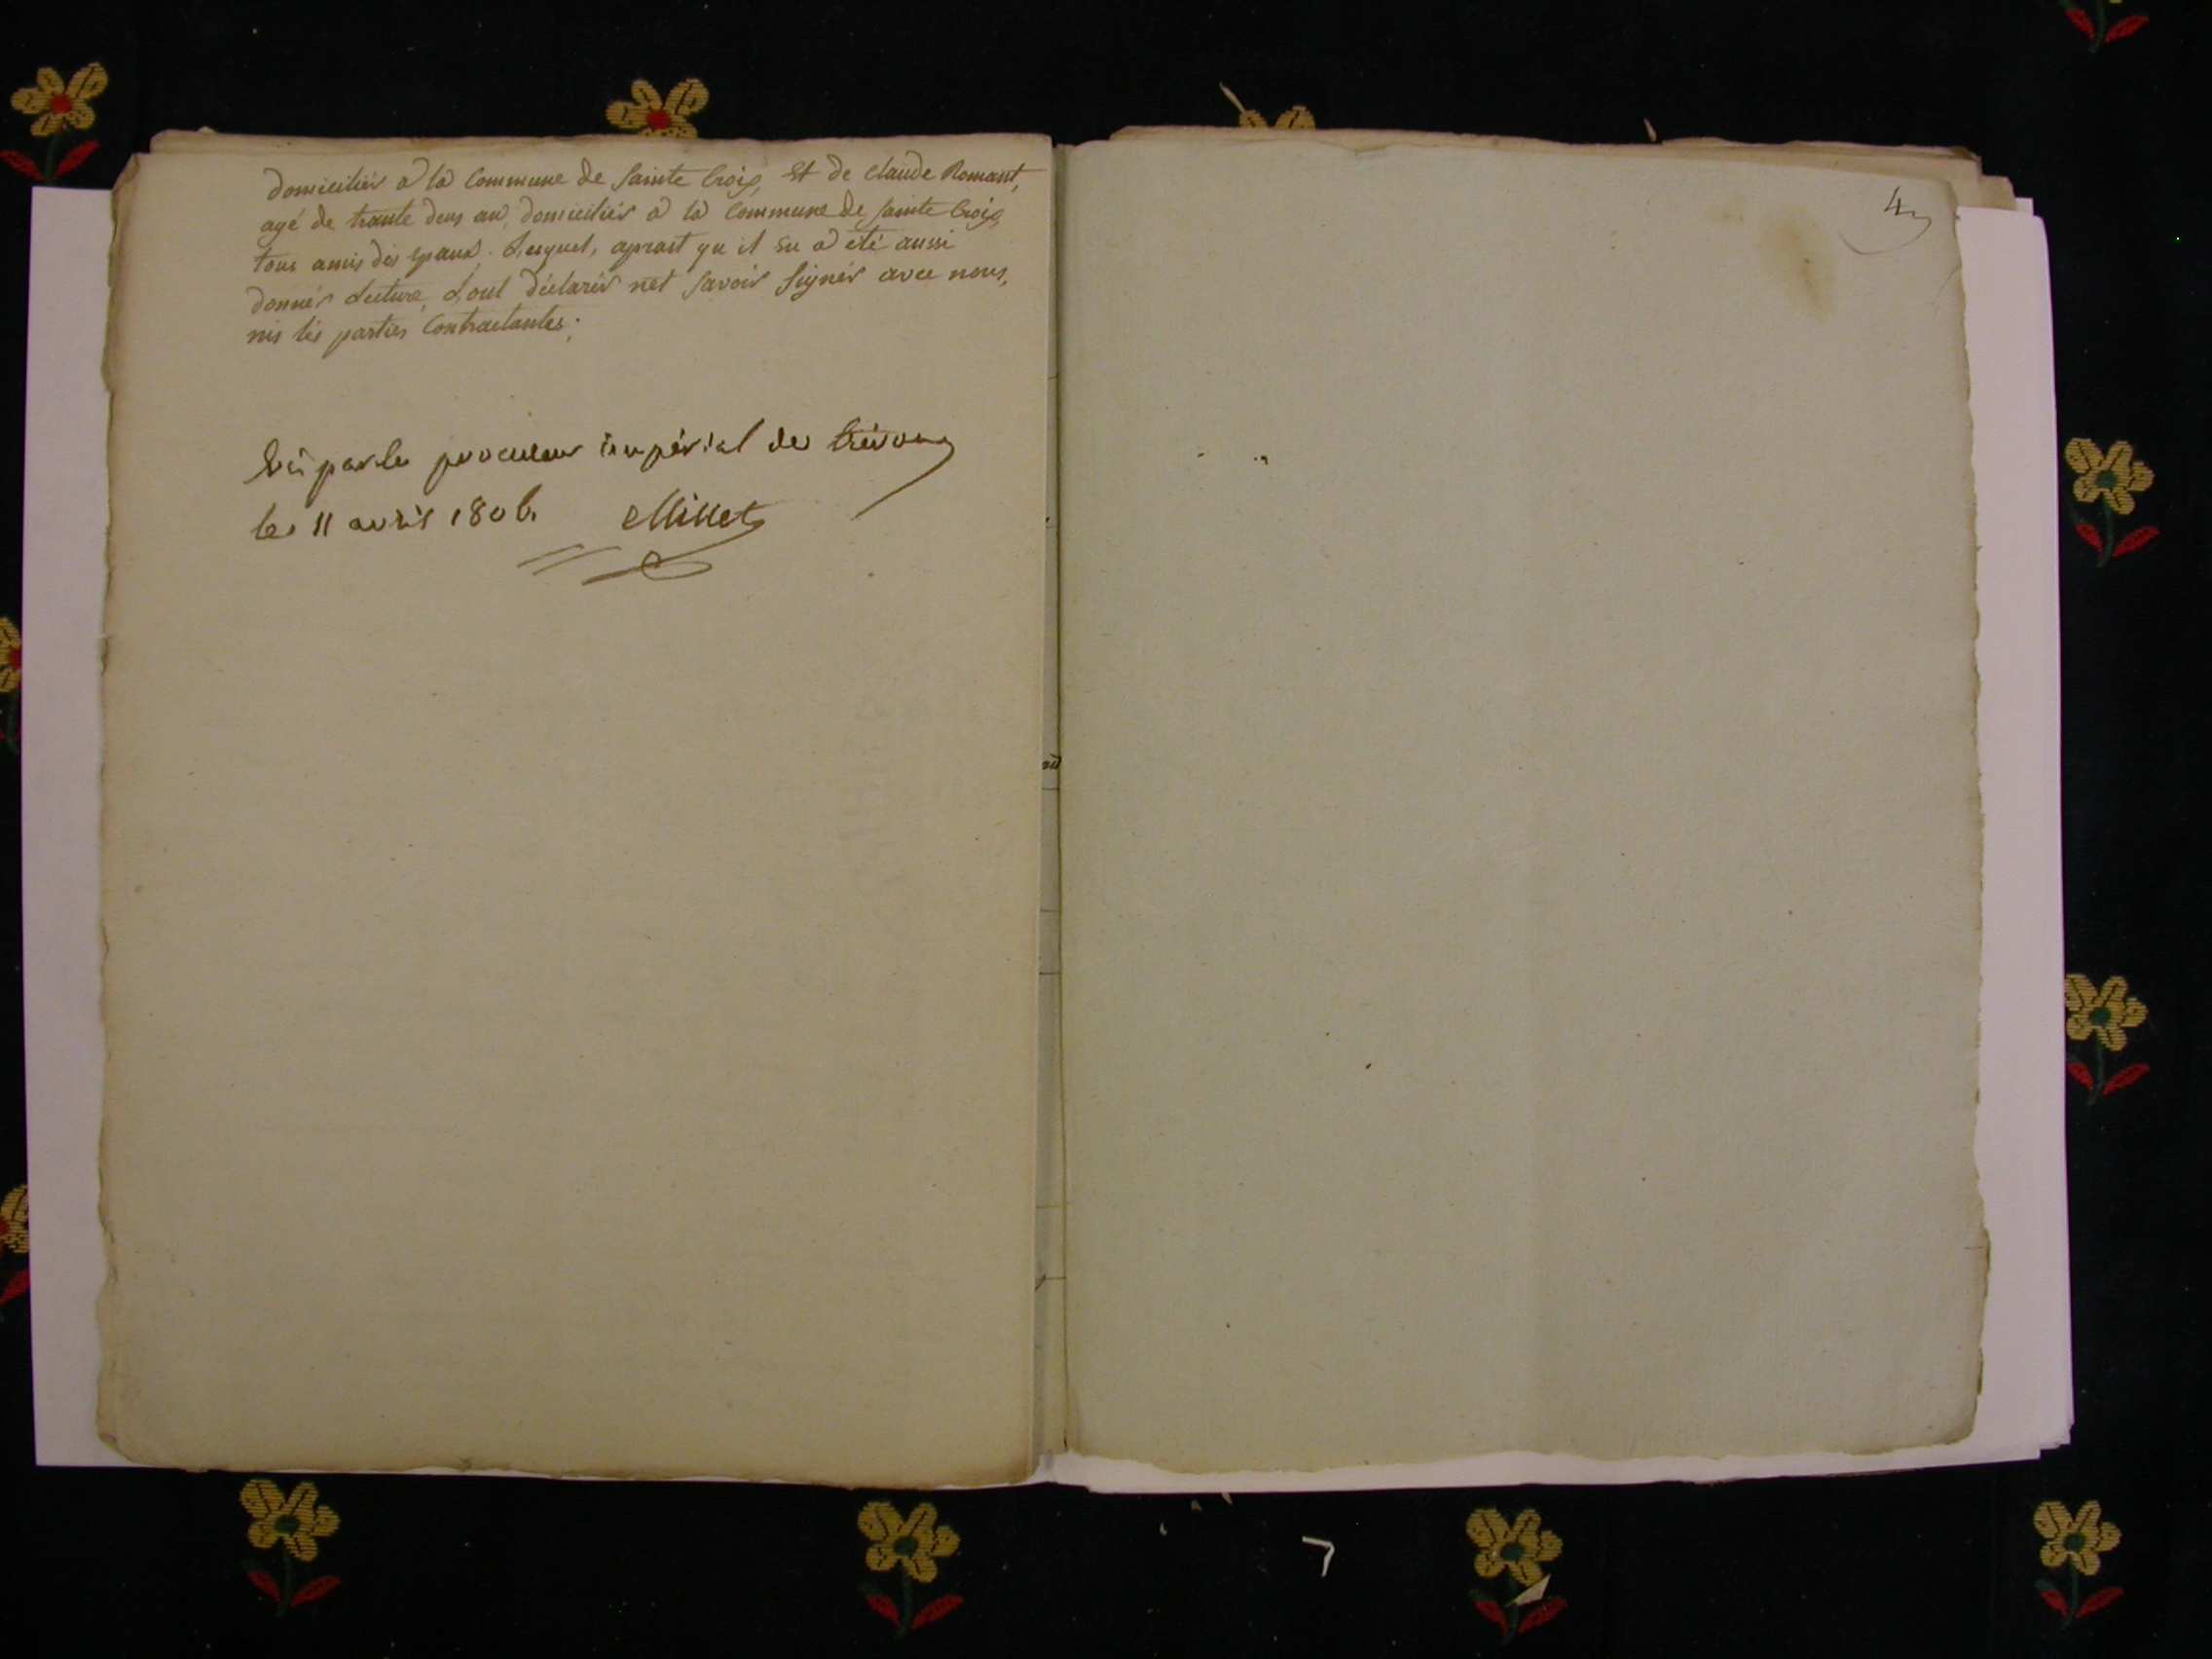 domiciliér a la Commune de Sainte Croix, Et de Claude Romant,
agé de trante deus an, domiciliér a la Commune de Sainte Croix,
tous amis dès epaux. Lesquel, aprast qu il su a été aussi
donnér Lecture, Lont déclarér net savoir Signér avec nous,
nis lès parties Contractantes.
Vû par le procureur impérial de trévoux
le 11 avril 1806. Millet
4